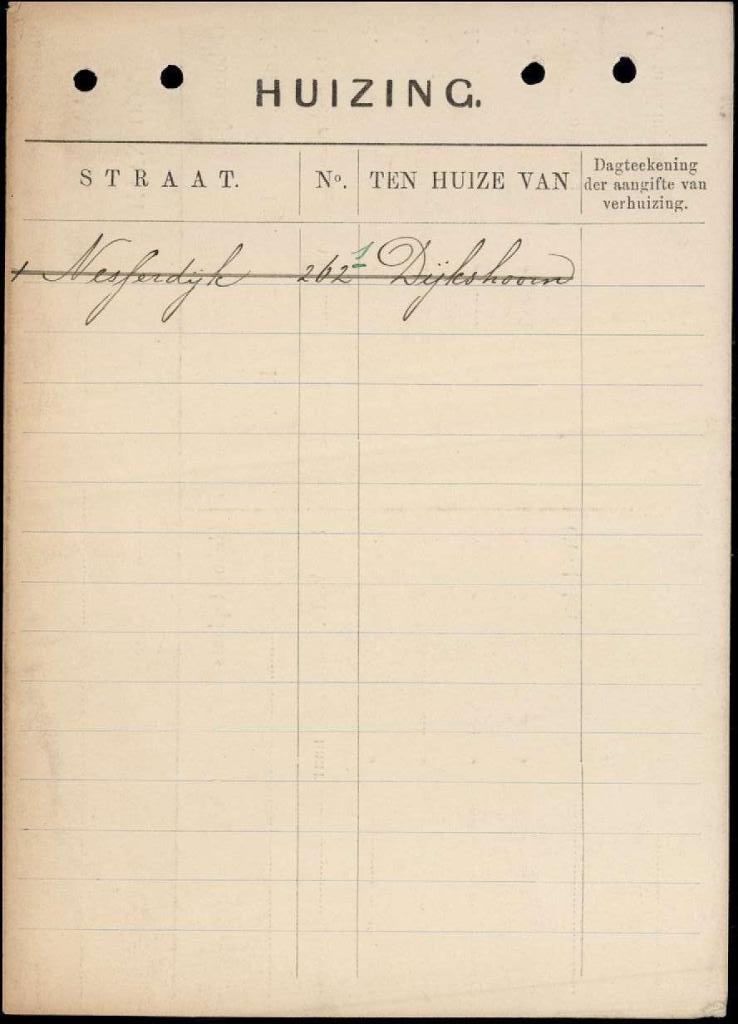 HUIZING.
STRAAT. No. TEN HUIZE VAN Dagteekening
der aangifte van
verhuizing.
Nesserdijk 262 1 Dijkshoorn